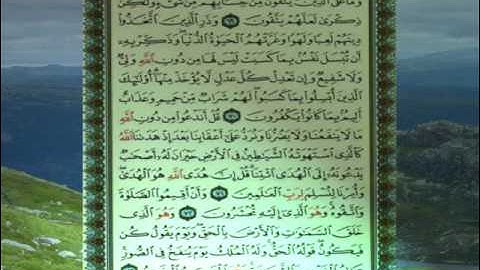 وَمَا عَلَى ٱلَّذِينَ يَتَّقُونَ مِنْ حِسَابِهِم مِّن شَىْءٍ وَلَٰكِن
ذِكْرَىٰ لَعَلَّهُمْ يَتَّقُونَ ٦٩ وَذَرِ ٱلَّذِينَ ٱتَّخَذُوا۟
دِينَهُمْ لَعِبًا وَلَهْوًا وَغَرَّتْهُمُ ٱلْحَيَوٰةُ ٱلدُّنْيَا وَذَكِّرْ بِهِۦٓ
أَن تُبْسَلَ نَفْسٌۢ بِمَا كَسَبَتْ لَيْسَ لَهَا مِن دُونِ ٱللَّهِ وَلِىٌّ
وَلَا شَفِيعٌ وَإِن تَعْدِلْ كُلَّ عَدْلٍ لَّا يُؤْخَذْ مِنْهَآ أُو۟لَٰٓئِكَ
ٱلَّذِينَ أُبْسِلُوا۟ بِمَا كَسَبُوا۟ لَهُمْ شَرَابٌ مِّنْ حَمِيمٍ وَعَذَابٌ
أَلِيمٌۢ بِمَا كَانُوا۟ يَكْفُرُونَ ٧٠ قُلْ أَنَدْعُوا۟ مِن دُونِ ٱللَّهِ
مَا لَا يَنفَعُنَا وَلَا يَضُرُّنَا وَنُرَدُّ عَلَىٰٓ أَعْقَابِنَا بَعْدَ إِذْ هَدَىٰنَا ٱللَّهُ
كَٱلَّذِى ٱسْتَهْوَتْهُ ٱلشَّيَٰطِينُ فِى ٱلْأَرْضِ حَيْرَانَ لَهُۥٓ أَصْحَٰبٌ
يَدْعُونَهُۥٓ إِلَى ٱلْهُدَى ٱئْتِنَا قُلْ إِنَّ هُدَى ٱللَّهِ هُوَ ٱلْهُدَىٰ
وَأُمِرْنَا لِنُسْلِمَ لِرَبِّ ٱلْعَٰلَمِينَ ٧١ وَأَنْ أَقِيمُوا۟ ٱلصَّلَوٰةَ
وَٱتَّقُوهُ وَهُوَ ٱلَّذِىٓ إِلَيْهِ تُحْشَرُونَ ٧٢ وَهُوَ ٱلَّذِى
خَلَقَ ٱلسَّمَٰوَٰتِ وَٱلْأَرْضَ بِٱلْحَقِّ وَيَوْمَ يَقُولُ كُن
فَيَكُونُ قَوْلُهُ ٱلْحَقُّ وَلَهُ ٱلْمُلْكُ يَوْمَ يُنفَخُ فِى ٱلصُّورِ